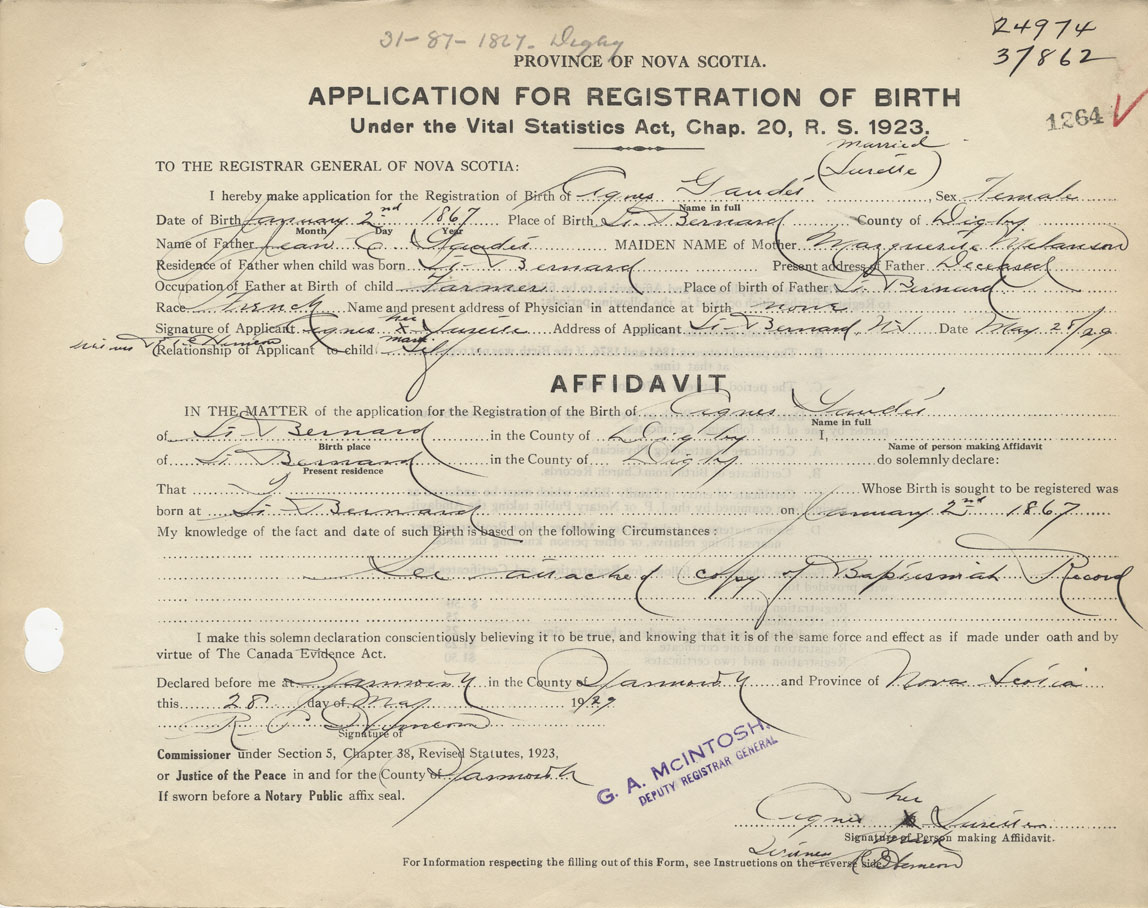 31-87-1867. Digby
24974
37862
PROVINCE OF NOVA SCOTIA.
APPLICATION FOR REGISTRATION OF BIRTH
1264 ✓
Under the Vital Statistics Act, Chap. 20, R. S. 1923.
married
TO THE REGISTRAR GENERAL OF NOVA SCOTIA: (Surette)
I hereby make application for the Registration of Birth of Agnes Gaudet Sex Female
Name in full
Date of Birth January 2nd 1867 Place of Birth St. Bernard County of Digby
Month Day Year
Name of Father Jean C. Gaudet MAIDEN NAME of Mother Marguerite Melanson
Residence of Father when child was born St. Bernard Present address of Father Deceased
Occupation of Father at Birth of child Farmer Place of birth of Father St. Bernard
Race French Name and present address of Physician in attendance at birth none
her
Signature of Applicant Agnes X Surette Address of Applicant St. Bernard, N.S. Date May 28/29
mark
Witness
Relationship of Applicant to child Self
AFFIDAVIT
IN THE MATTER of the application for the Registration of the Birth of Agnes Gaudet
Name in full
of St. Bernard in the County of Digby I,
Birth place Name of person making Affidavit
of St. Bernard in the County of Digby do solemnly declare:
Present residence
That I Whose Birth is sought to be registered was
born at St. Bernard on January 2nd 1867
My knowledge of the fact and date of such Birth is based on the following Circumstances:
See attached copy of Baptismal Record
I make this solemn declaration conscientiously believing it to be true, and knowing that it is of the same force and effect as if made under oath and by
virtue of The Canada Evidence Act.
Declared before me at Yarmouth in the County of Yarmouth and Province of Nova Scotia
this 28 day of May 1929
Signature of
Commissioner under Section 5, Chapter 38, Revised Statutes, 1923,
or Justice of the Peace in and for the County of Yarmouth
If sworn before a Notary Public affix seal.
G. A. McINTOSH.
DEPUTY REGISTRAR GENERAL
her
Agnes X Surette
mark
Signature of Person making Affidavit.
Witness
For Information respecting the filling out of this Form, see Instructions on the reverse side.